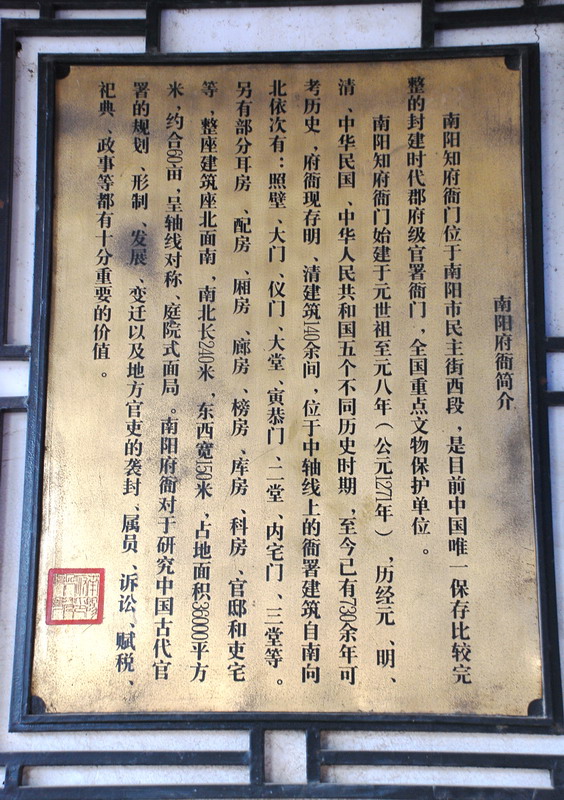 南阳府衙简介
南阳知府衙门位于南阳市民主街西段，是目前中国唯一保存比较完
整的封建时代郡府级官署衙门，全国重点文物保护单位。
南阳知府衙门始建于元世祖至元八年（公元1271年），历经元、明、
清、中华民国、中华人民共和国五个不同历史时期，至今已有730余年可
考历史，府衙现存明、清建筑140余间，位于中轴线上的衙署建筑自南向
北依次有：照壁、大门、仪门、大堂、寅恭门、二堂、内宅门、三堂等。
另有部分耳房、配房、厢房、廊房、榜房、库房、科房、官邸和吏宅
等，整座建筑座北面南，南北长240米，东西宽150米，占地面积36000平方
米，约合60亩，呈轴线对称、庭院式面局。南阳府衙对于研究中国古代官
署的规划、形制、发展、变迁以及地方官吏的袭封、属员、诉讼、赋税、
祀典、政事等都有十分重要的价值。